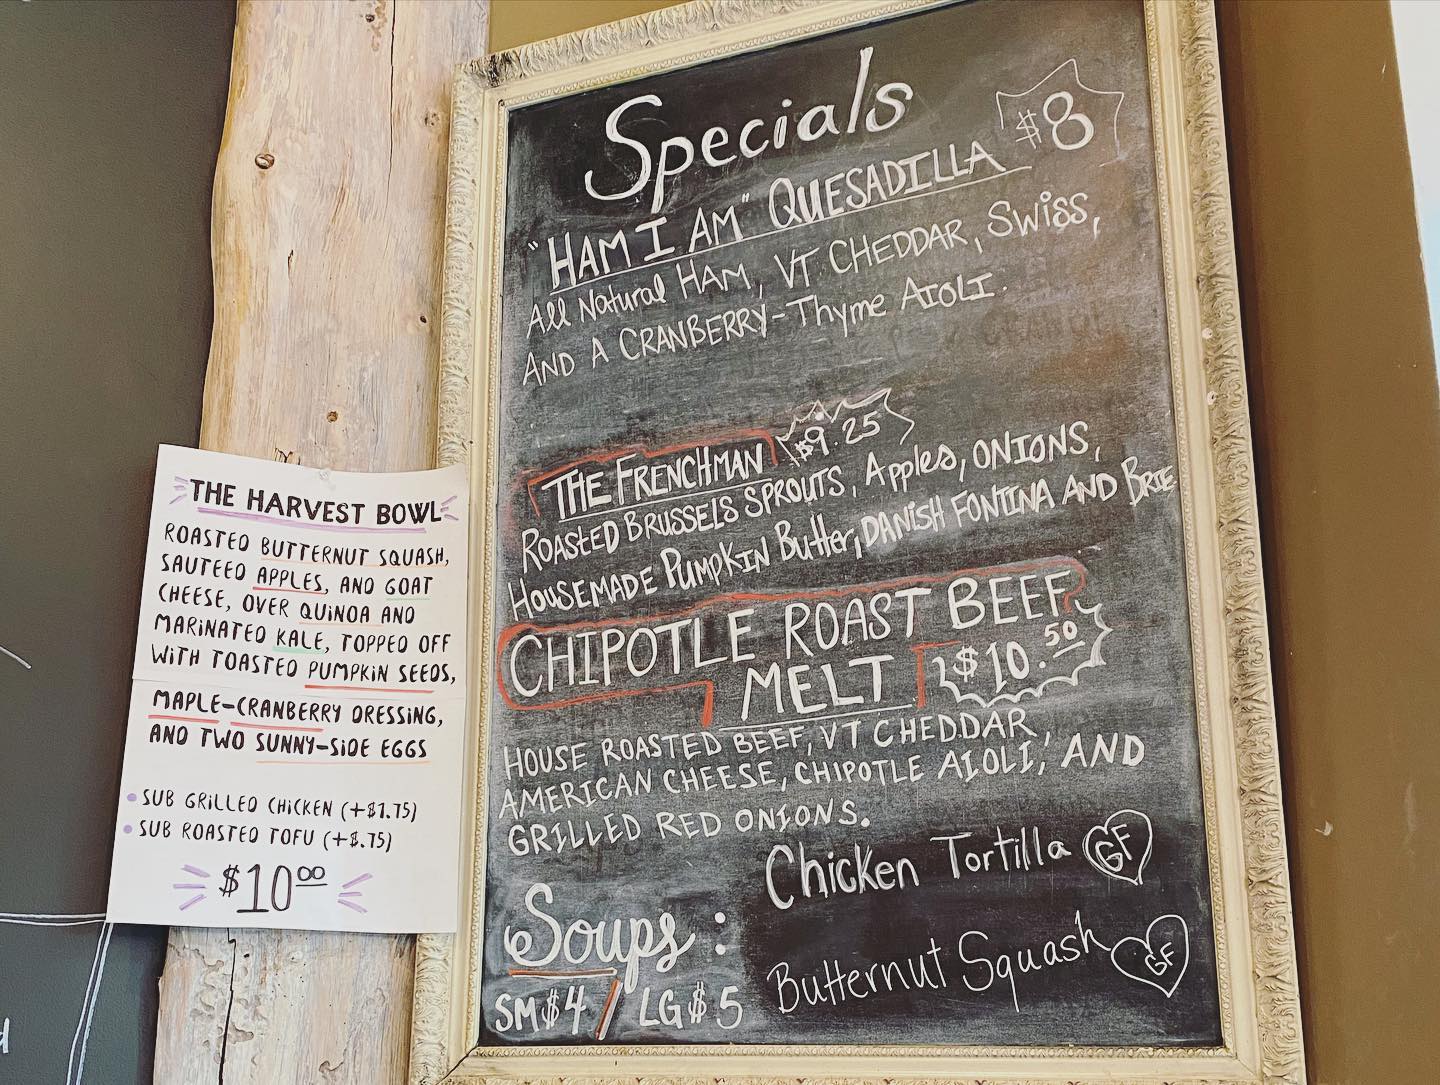 THE HARVEST BOWL
ROASTED BUTTERNUT SQUASH,
SAUTEED APPLES, AND GOAT
CHEESE, OVER QUINOA AND
MARINATED KALE, TOPPED OFF
WITH TOASTED PUMPKIN SEEDS,
MAPLE-CRANBERRY DRESSING,
AND TWO SUNNY-SIDE EGGS
• SUB GRILLED CHICKEN (+$1.75)
• SUB ROASTED TOFU (+$.75)
$10.00
Specials
"HAM I AM" QUESADILLA $8
All Natural HAM, VT CHEDDAR, SWISS,
AND A CRANBERRY-Thyme AIOLI.
THE FRENCHMAN $9.25
ROASTED BRUSSELS SPROUTS, Apples, ONIONS,
HOUSEMADE PUMPKIN Butter, DANISH FONTINA AND BRIE
CHIPOTLE ROAST BEEF
MELT $10.50
HOUSE ROASTED BEEF, VT CHEDDAR,
AMERICAN CHEESE, CHIPOTLE AIOLI, AND
GRILLED RED ONIONS.
Soups:
SM $4 / LG $5
Chicken Tortilla GF
Butternut Squash GF